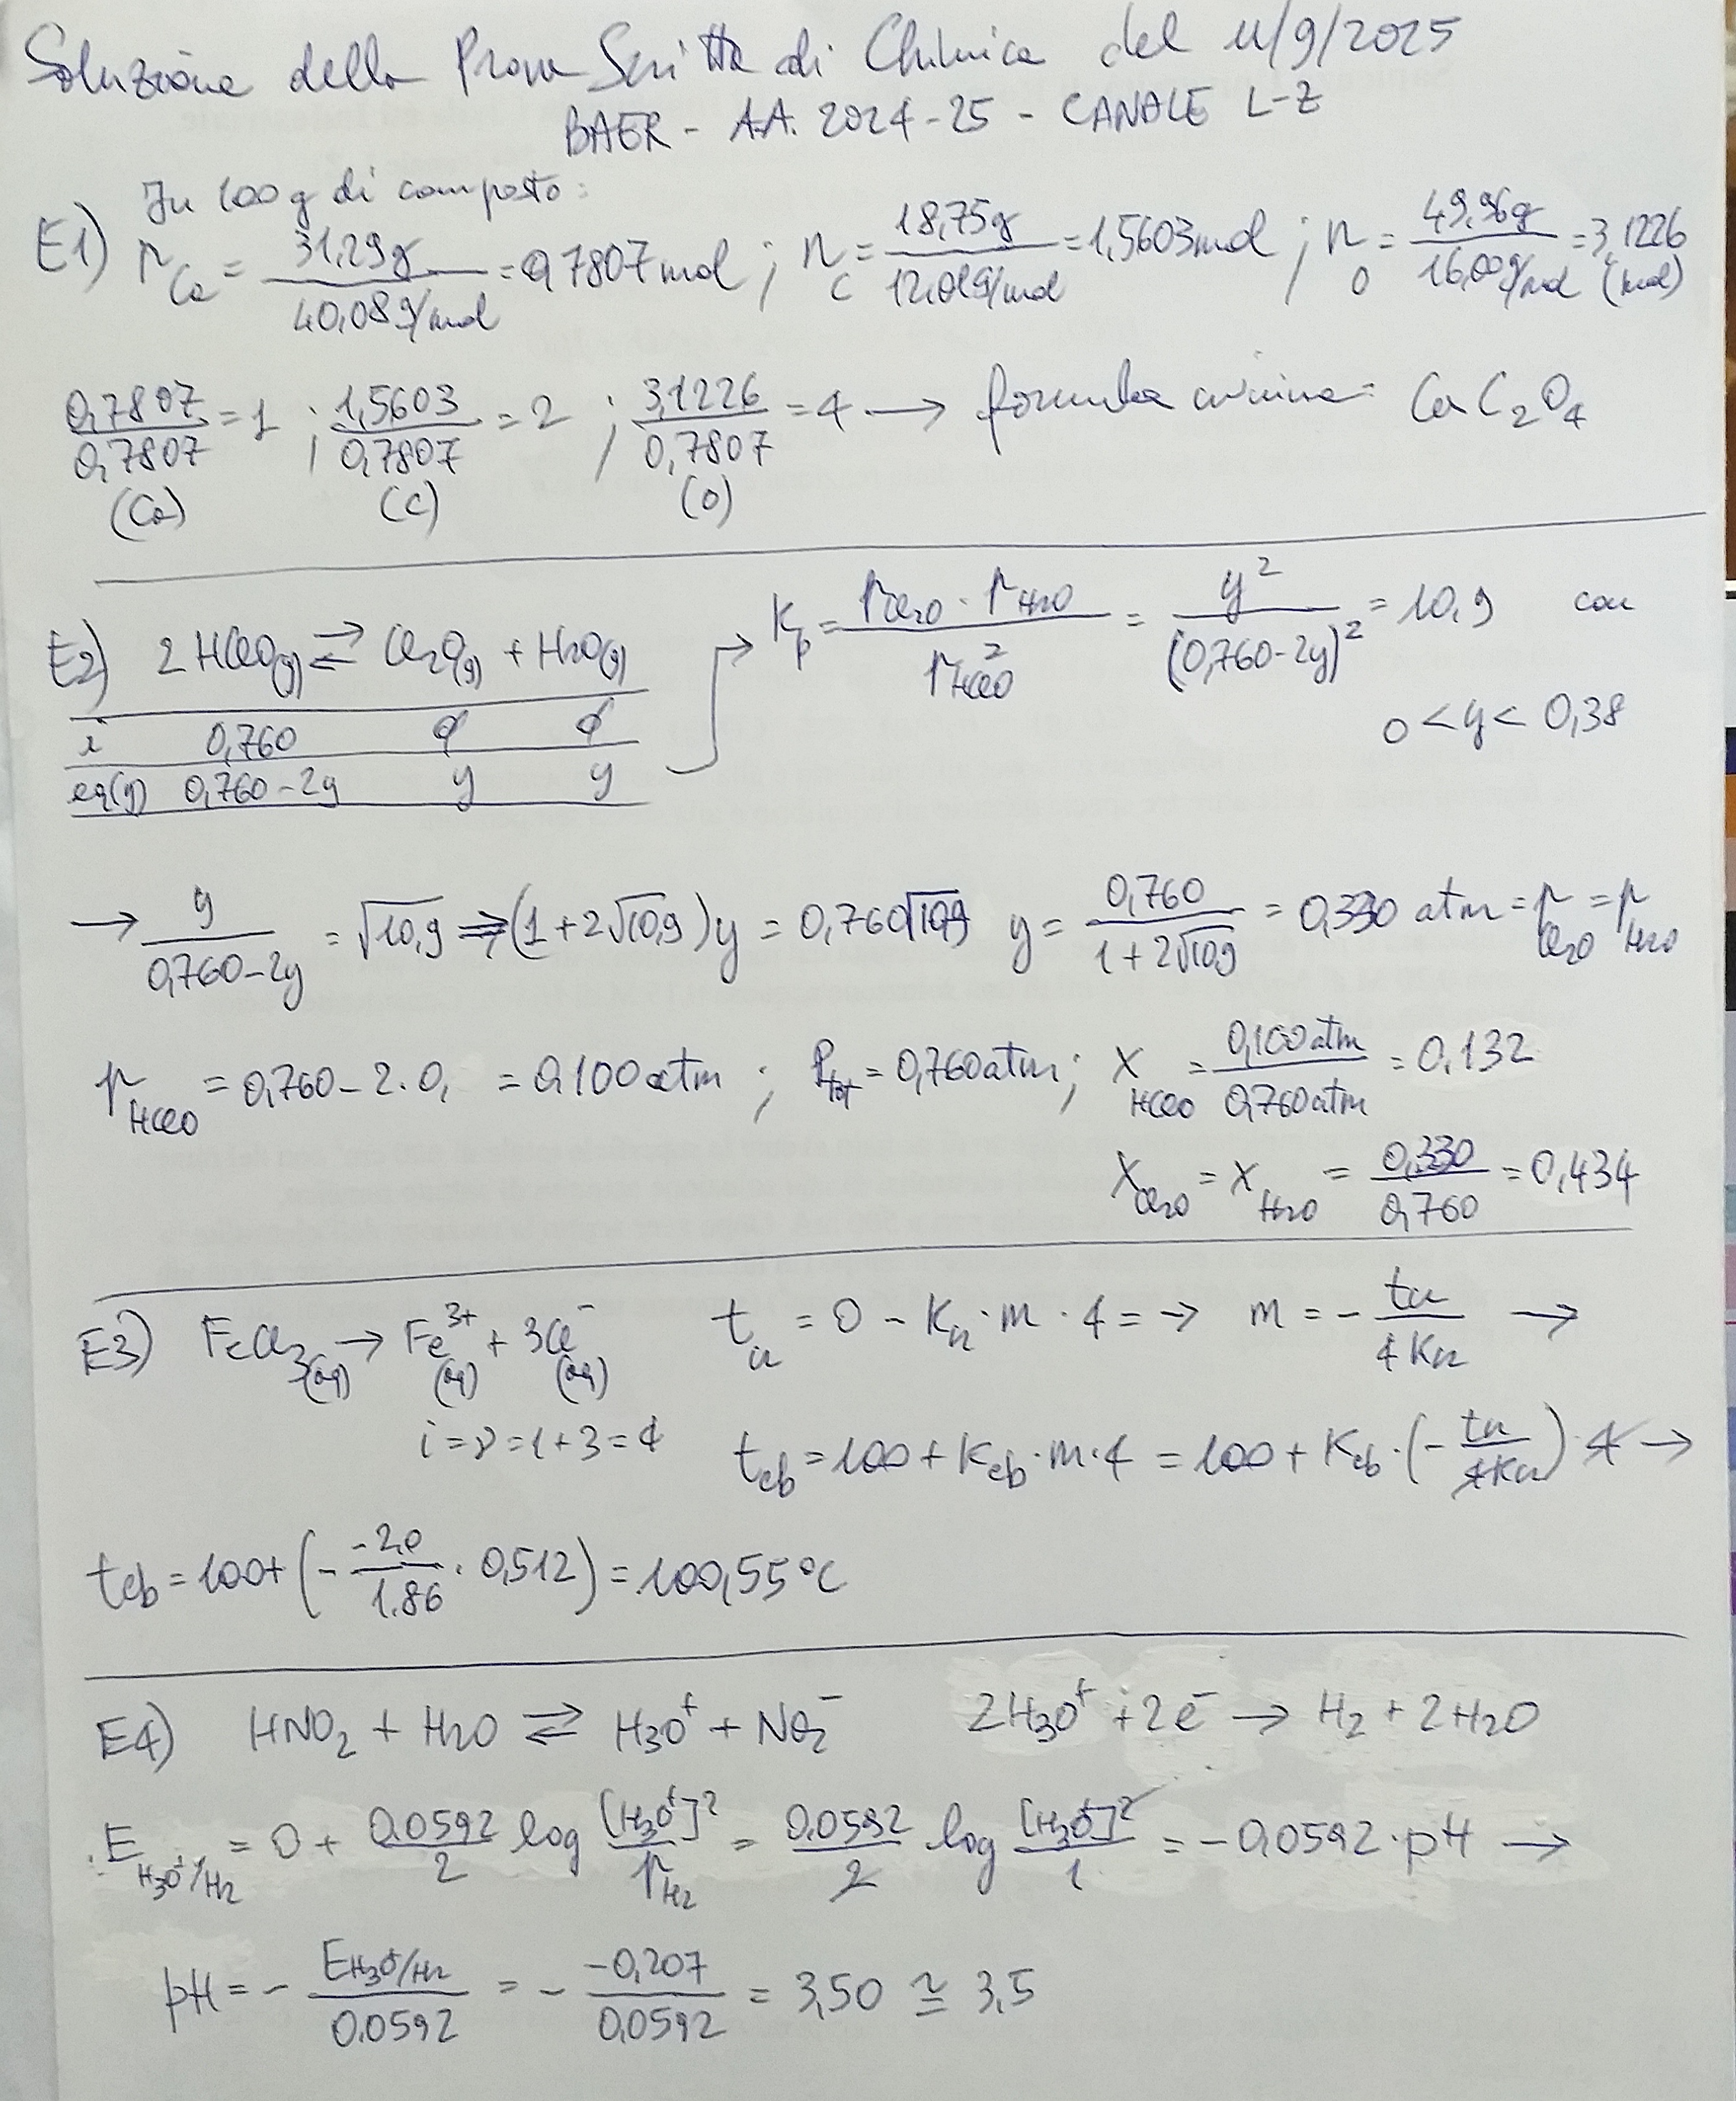 Soluzione della Prova Scritta di Chimica del 11/9/2025
BAER - A.A. 2024-25 - CANALE L-Z
In 100 g di composto:
E1) n_Ca = 31,29g / 40,08 g/mol = 0,7807 mol ; n_C = 18,75g / 12,01 g/mol = 1,5603 mol ; n_O = 49,96g / 16,00 g/mol = 3,1226 (mol)
0,7807 / 0,7807 = 1 ; 1,5603 / 0,7807 = 2 ; 3,1226 / 0,7807 = 4 → formula minima = CaC₂O₄
(Ca) (C) (O)
E2) 2 HClO(g) ⇌ Cl₂O(g) + H₂O(g) → Kp = p_Cl₂O · p_H₂O / p²_HClO = y² / (0,760-2y)² = 10,9 con
i 0,760 ∅ ∅ 0 < y < 0,38
eq(y) 0,760-2y y y
→ y / 0,760-2y = √10,9 ⇒ (1+2√10,9)y = 0,760√10,9 y = 0,760 / 1+2√10,9 = 0,330 atm = p_Cl₂O = p_H₂O
p_HClO = 0,760 - 2·0, = 0,100 atm ; P_tot = 0,760 atm ; X_HClO = 0,100 atm / 0,760 atm = 0,132
X_Cl₂O = X_H₂O = 0,330 / 0,760 = 0,434
E3) FeCl₃(aq) → Fe³⁺(aq) + 3Cl⁻(aq) t_cr = 0 - K_cr · m · 4 = → m = - t_cr / 4K_cr →
i = ν = 1+3 = 4 t_eb = 100 + K_eb · m · 4 = 100 + K_eb · (- t_cr / 4K_cr) · 4 →
t_eb = 100 + (- -2,0 / 1,86 · 0,512) = 100,55 °C
E4) HNO₂ + H₂O ⇌ H₃O⁺ + NO₂⁻ 2H₃O⁺ + 2e⁻ → H₂ + 2H₂O
E_H₃O⁺/H₂ = 0 + 0,0592 / 2 log [H₃O⁺]² / p_H₂ = 0,0592 / 2 log [H₃O⁺]² / 1 = -0,0592 · pH →
pH = - E_H₃O⁺/H₂ / 0,0592 = - -0,207 / 0,0592 = 3,50 ≅ 3,5